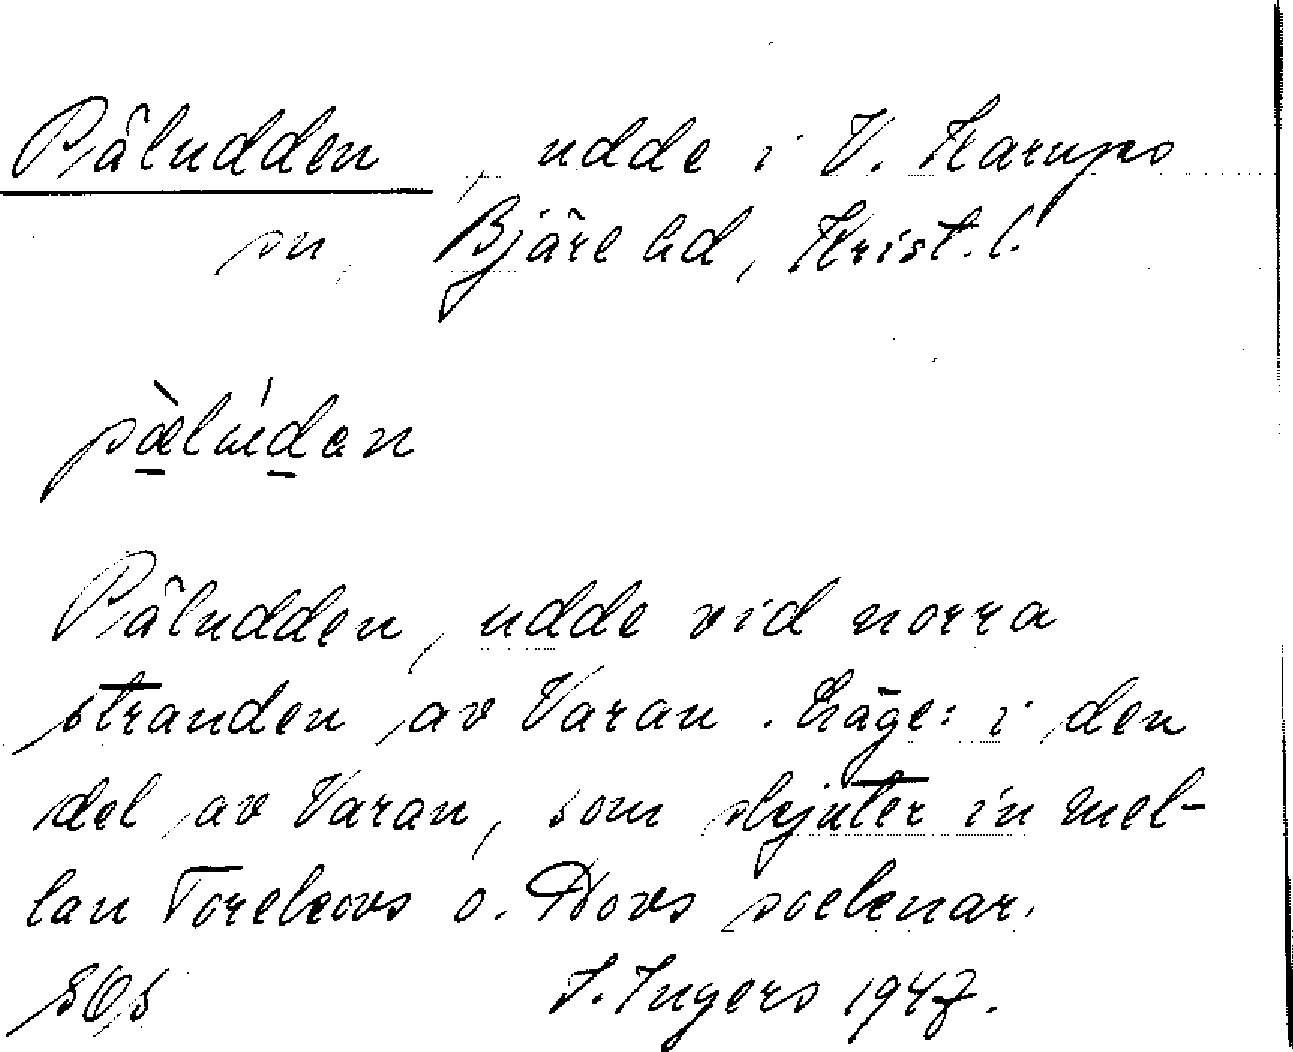 Påludden, udde i V. Karups
sn, Bjäre hd, Krist. l.
pæ̀lúdan
Påludden, udde vid norra
stranden av Varan. Läge: i den
del av Varan, som skjuter in mel-
lan Torekovs o. Hovs socknar.
I. Ingers 1947.